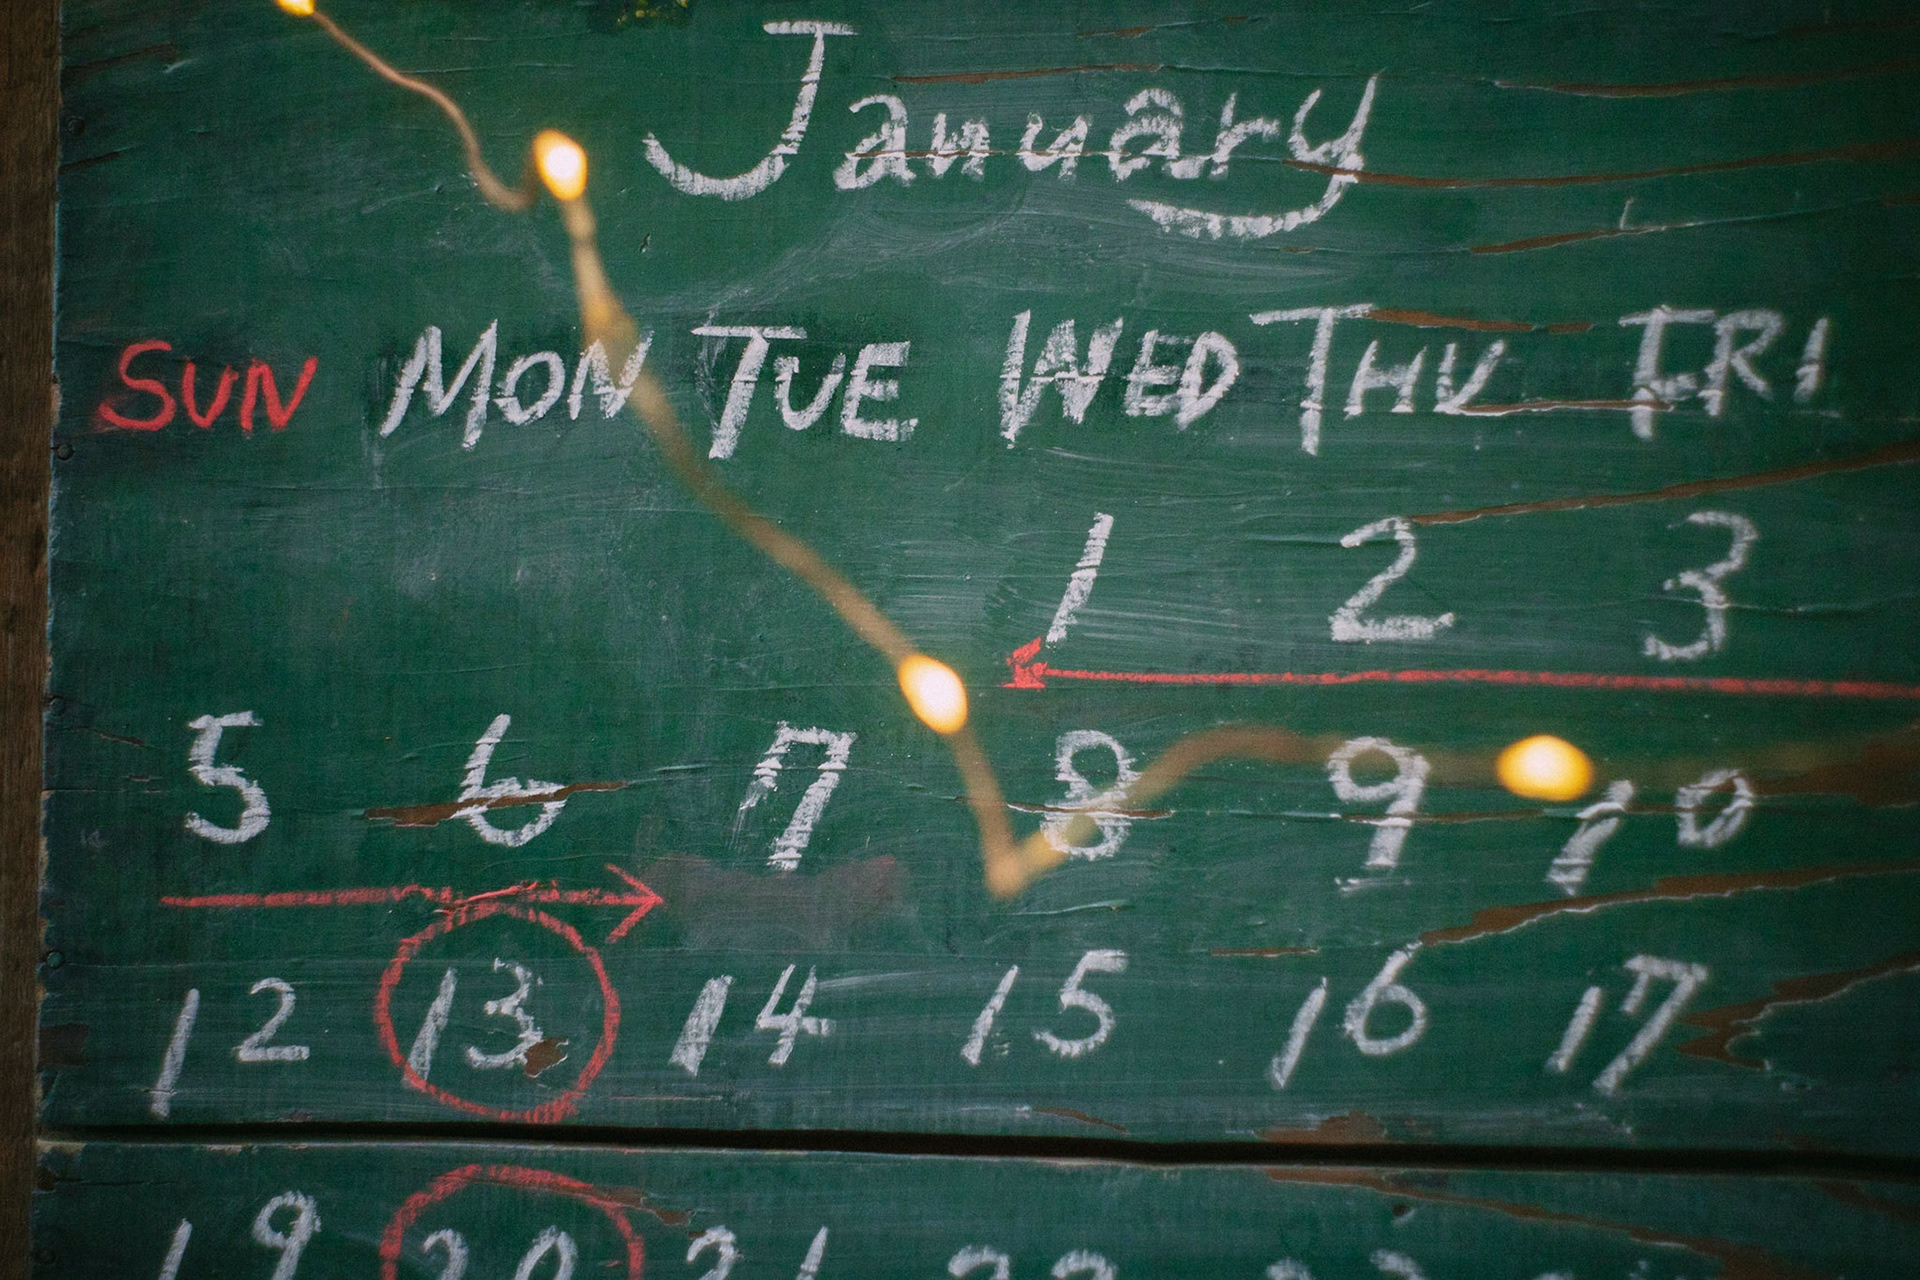 January
SUN MON TUE WED THU FRI
1 2 3
5 6 7 8 9 10
12 13 14 15 16 17
19 20 21 22